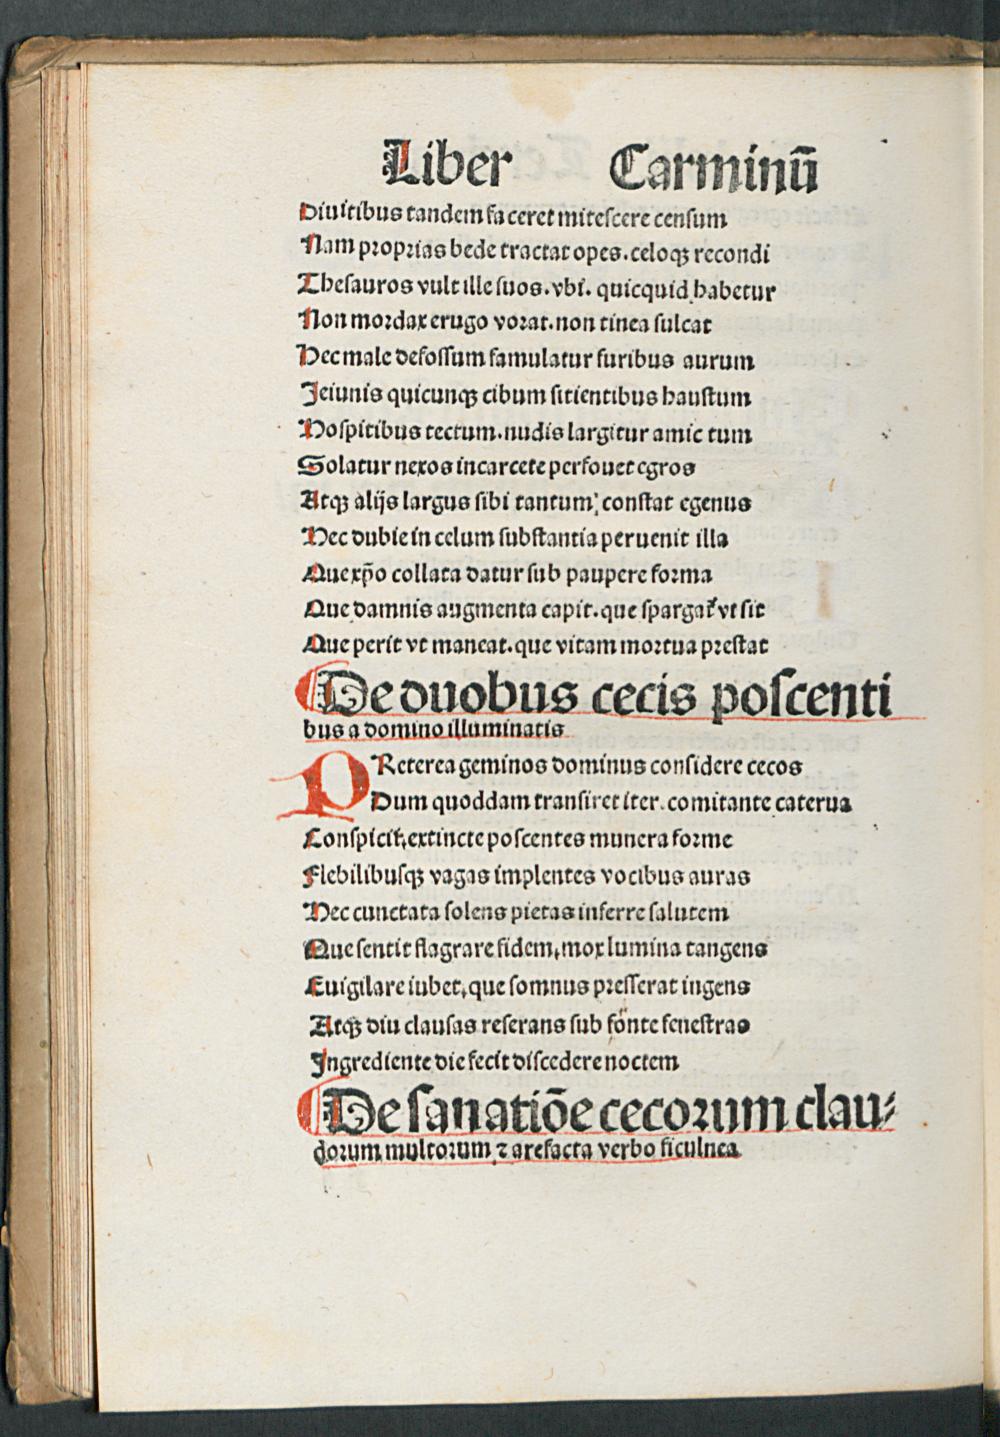 Liber Carminū
Diuitibus tandem faceret mitescere censum
Nam proprias bede tractat opes. celoqꝫ recondi
Thesauros vult ille suos. vbi. quicquid habetur
Non mordax erugo vorat. non tinea sulcat
Hec male defossum famulatur furibus aurum
Jeiunis quicunqꝫ cibum sitientibus haustum
Hospitibus tectum. nudis largitur amic tum
Solatur nexos incarcete perfouet egros
Atqꝫ alijs largus sibi tantum; constat egenus
Hec dubie in celum substantia peruenit illa
Que xp̄o collata datur sub paupere forma
Que damnis augmenta capit. que spargat᷑ vt sit
Que perit vt maneat. que vitam mortua prestat
De duobus cecis poscenti
bus a domino illuminatis
PReterea geminos dominus considere cecos
Dum quoddam transiret iter. comitante caterua
Conspicit᷑, extincte poscentes munera forme
Flebilibusqꝫ vagas implentes vocibus auras
Nec cunctata solens pietas inferre salutem
Que sentit flagrare fidem, mox lumina tangens
Euigilare iubet, que somnus presserat ingens
Atqꝫ diu clausas reserans sub fōnte fenestras
Ingrediente die fecit discedere noctem
De sanatiōe cecorum clau⸗
dorum multorum ⁊ arefacta verbo ficulnea